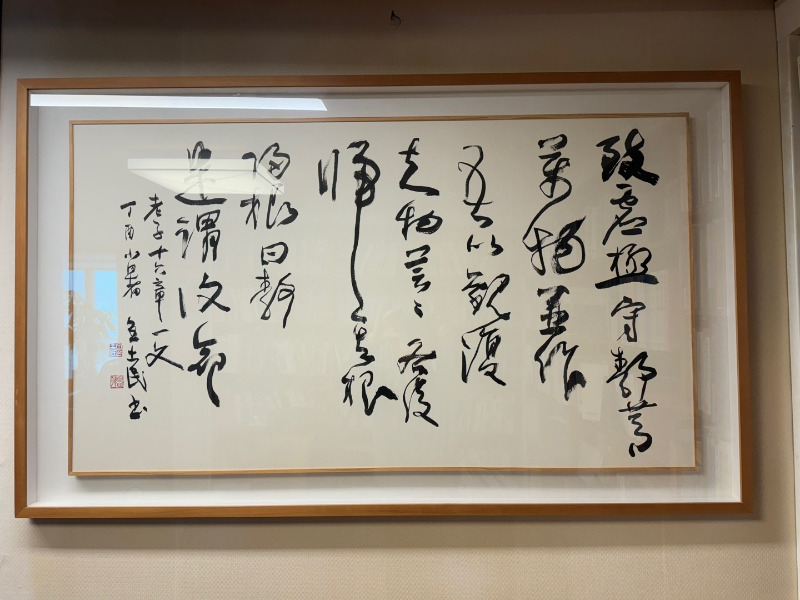 致虛極守靜篤
萬物並作
吾以觀復
夫物芸〻各復
歸其根
歸根曰靜
是謂復命
老子十六章一文
丁酉小 民書